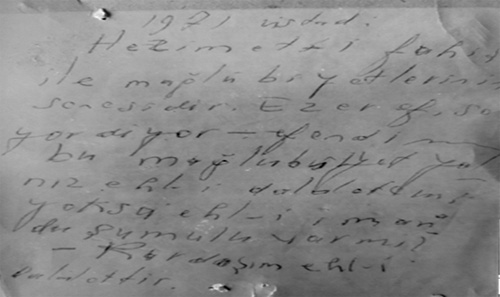 1971
Hezimet-i fahiş
ile mağlubiyetlerinin
senesidir. Ezer efiso
yordiyor - efendim
bu mağlubiyet yal
nız ehl-i dalaletin
yoksa ehl-i imana
da şumulu var mı?
- Kardaşım ehl-i
dalalettir.